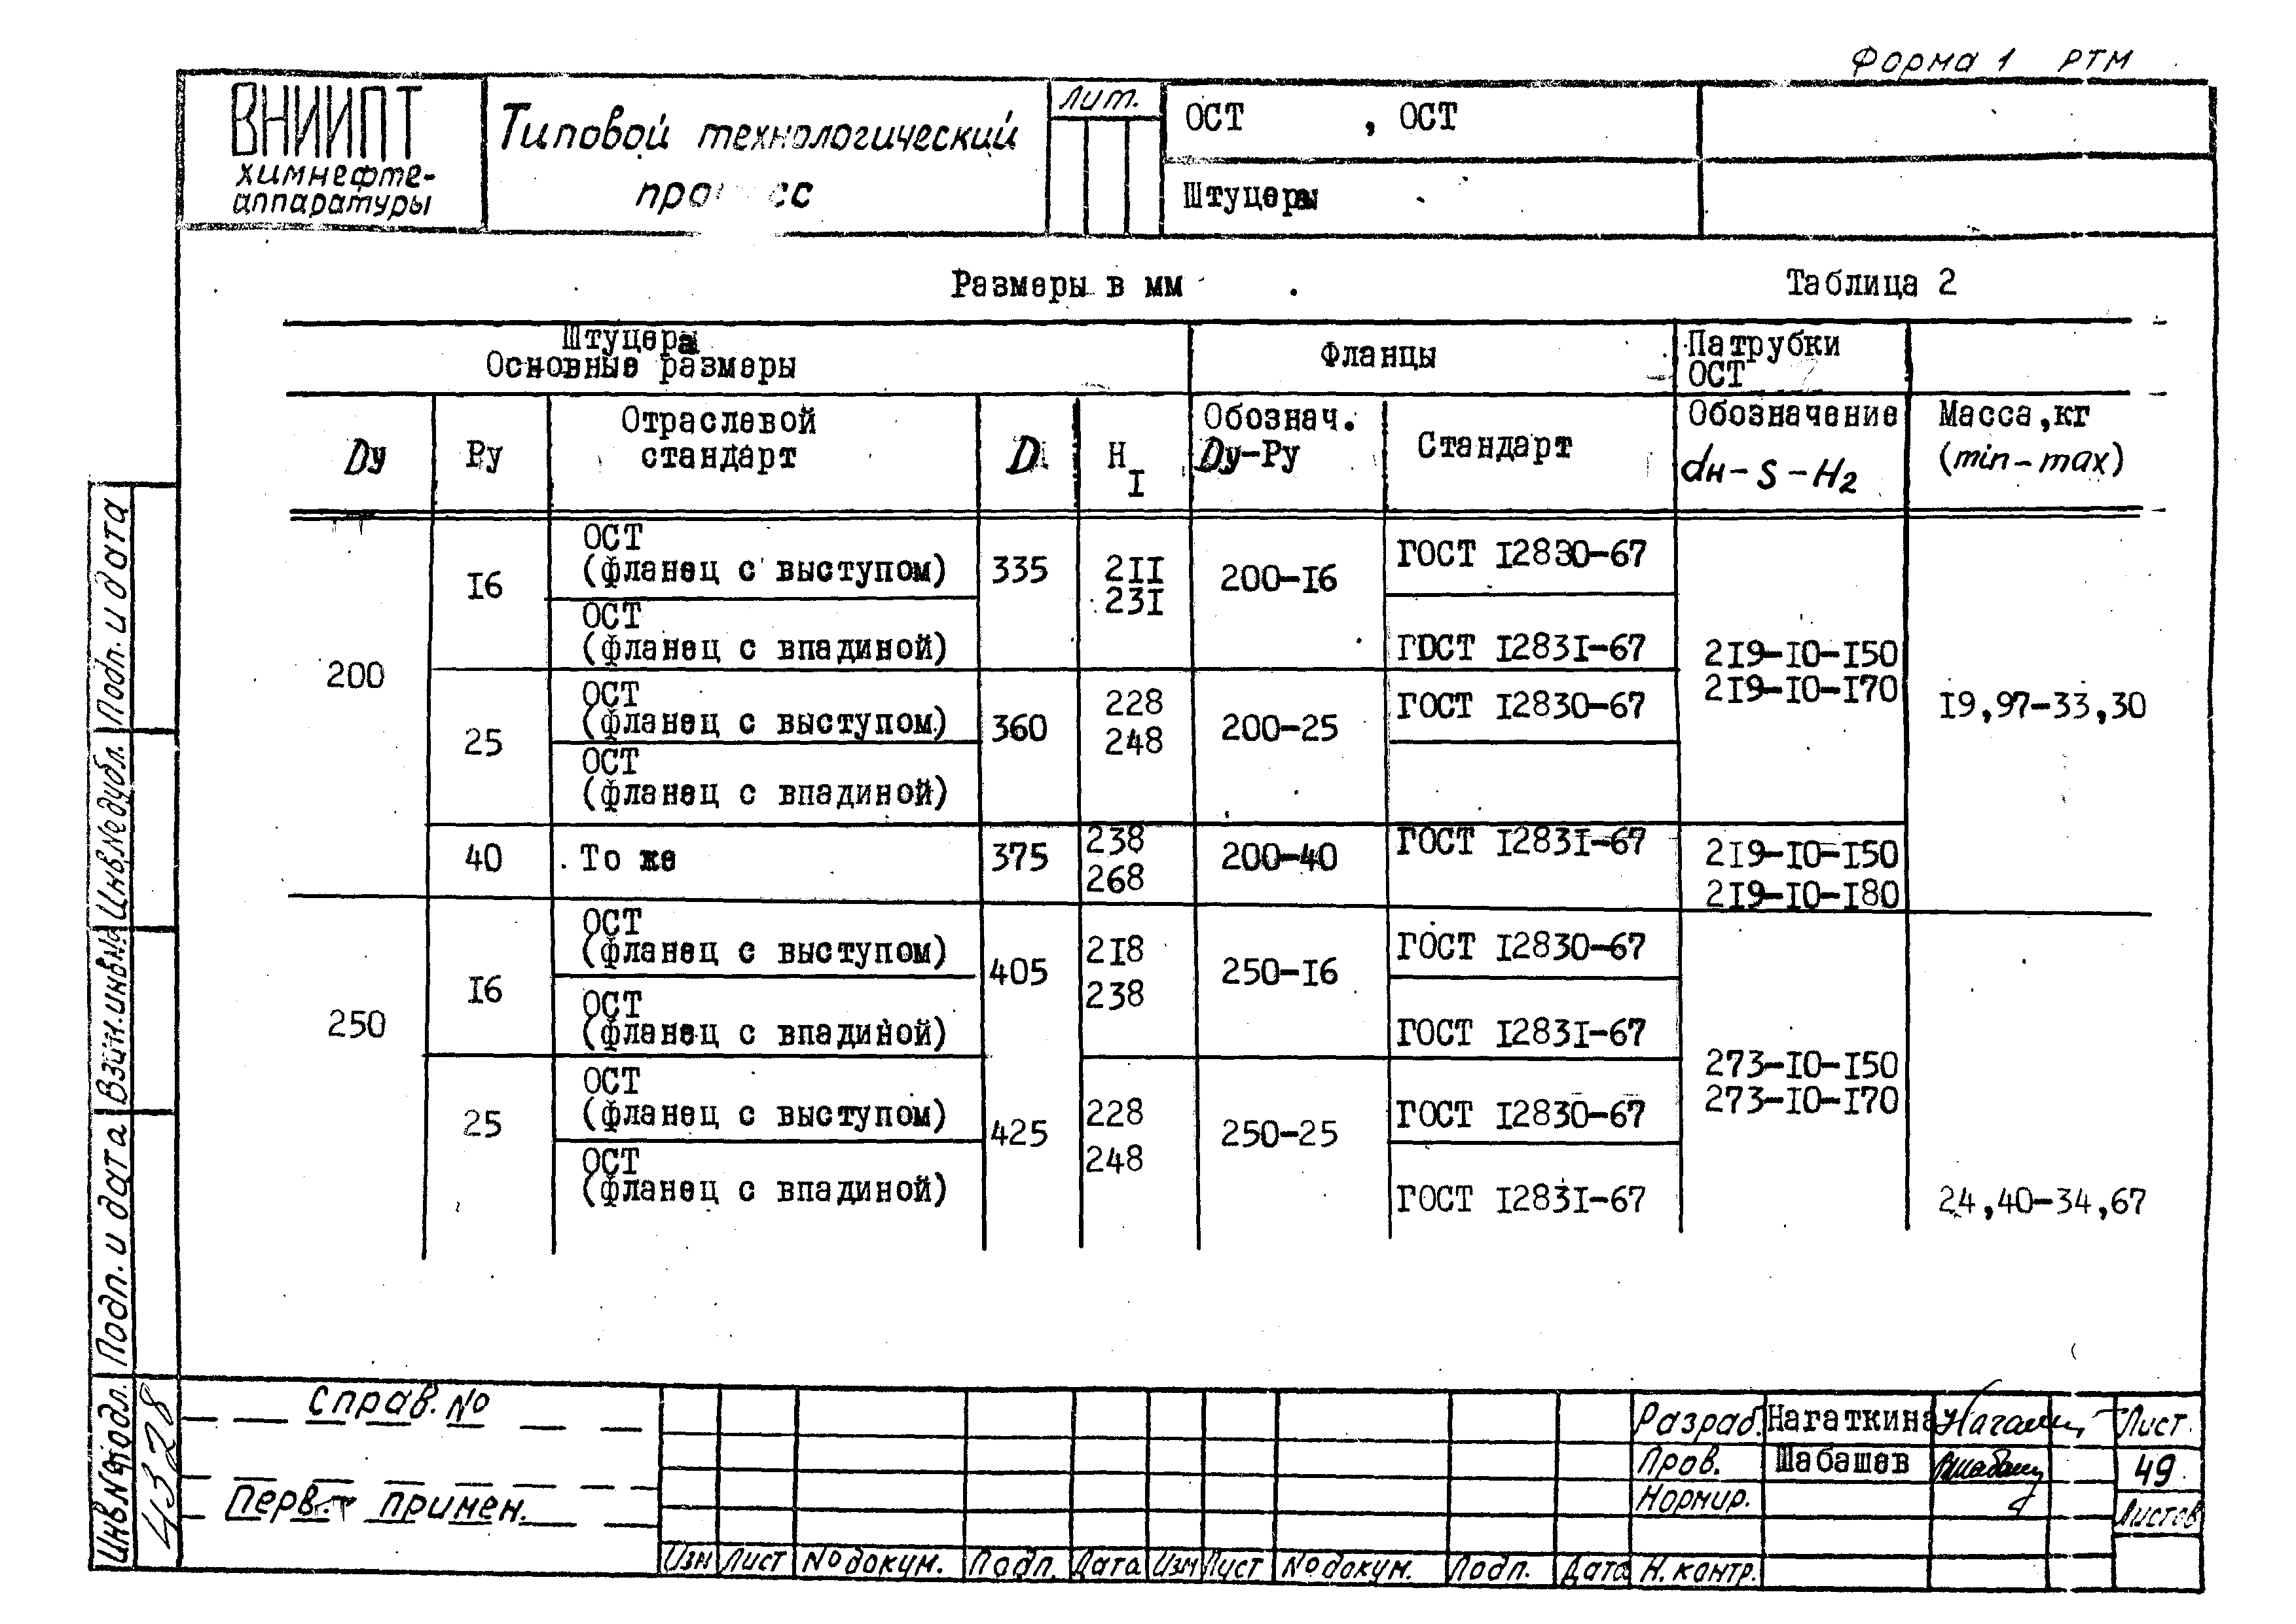 Форма 1 РТМ
ВНИИПТ
химнефте-
аппаратуры
Типовой технологический
Лит.
ОСТ , ОСТ
Штуцеры
Размеры в мм
Таблица 2
Штуцеры
Основные размеры
Фланцы
Патрубки
ОСТ
Dу
Ру
Отраслевой
стандарт
D
H I
Обознач.
Dу-Ру
Стандарт
Обозначение
dн-S-H2
Масса,кг
(min-max)
200
I6
ОСТ
(фланец с выступом)
ОСТ
(фланец с впадиной)
335
2II
23I
200-I6
ГОСТ I2830-67
ГОСТ I283I-67
2I9-I0-I50
2I9-I0-I70
I9,97-33,30
25
ОСТ
(фланец с выступом)
ОСТ
(фланец с впадиной)
360
228
248
200-25
ГОСТ I2830-67
40
То же
375
238
268
200-40
ГОСТ I283I-67
2I9-I0-I50
2I9-I0-I80
250
I6
ОСТ
(фланец с выступом)
ОСТ
(фланец с впадиной)
405
2I8
238
250-I6
ГОСТ I2830-67
ГОСТ I283I-67
273-I0-I50
273-I0-I70
25
ОСТ
(фланец с выступом)
ОСТ
(фланец с впадиной)
425
228
248
250-25
ГОСТ I2830-67
ГОСТ I283I-67
24,40-34,67
Подп. и дата
Инв.№дубл.
Взам.инв.№
Подп. и дата
Инв.№подл.
4328
Справ. №
Перв. примен.
Изм Лист № докум. Подп. Дата Изм Лист № докум. Подп. Дата
Разраб. Нагаткина
Пров. Шабашев
Нормир.
Н. контр.
Лист
49
Листов